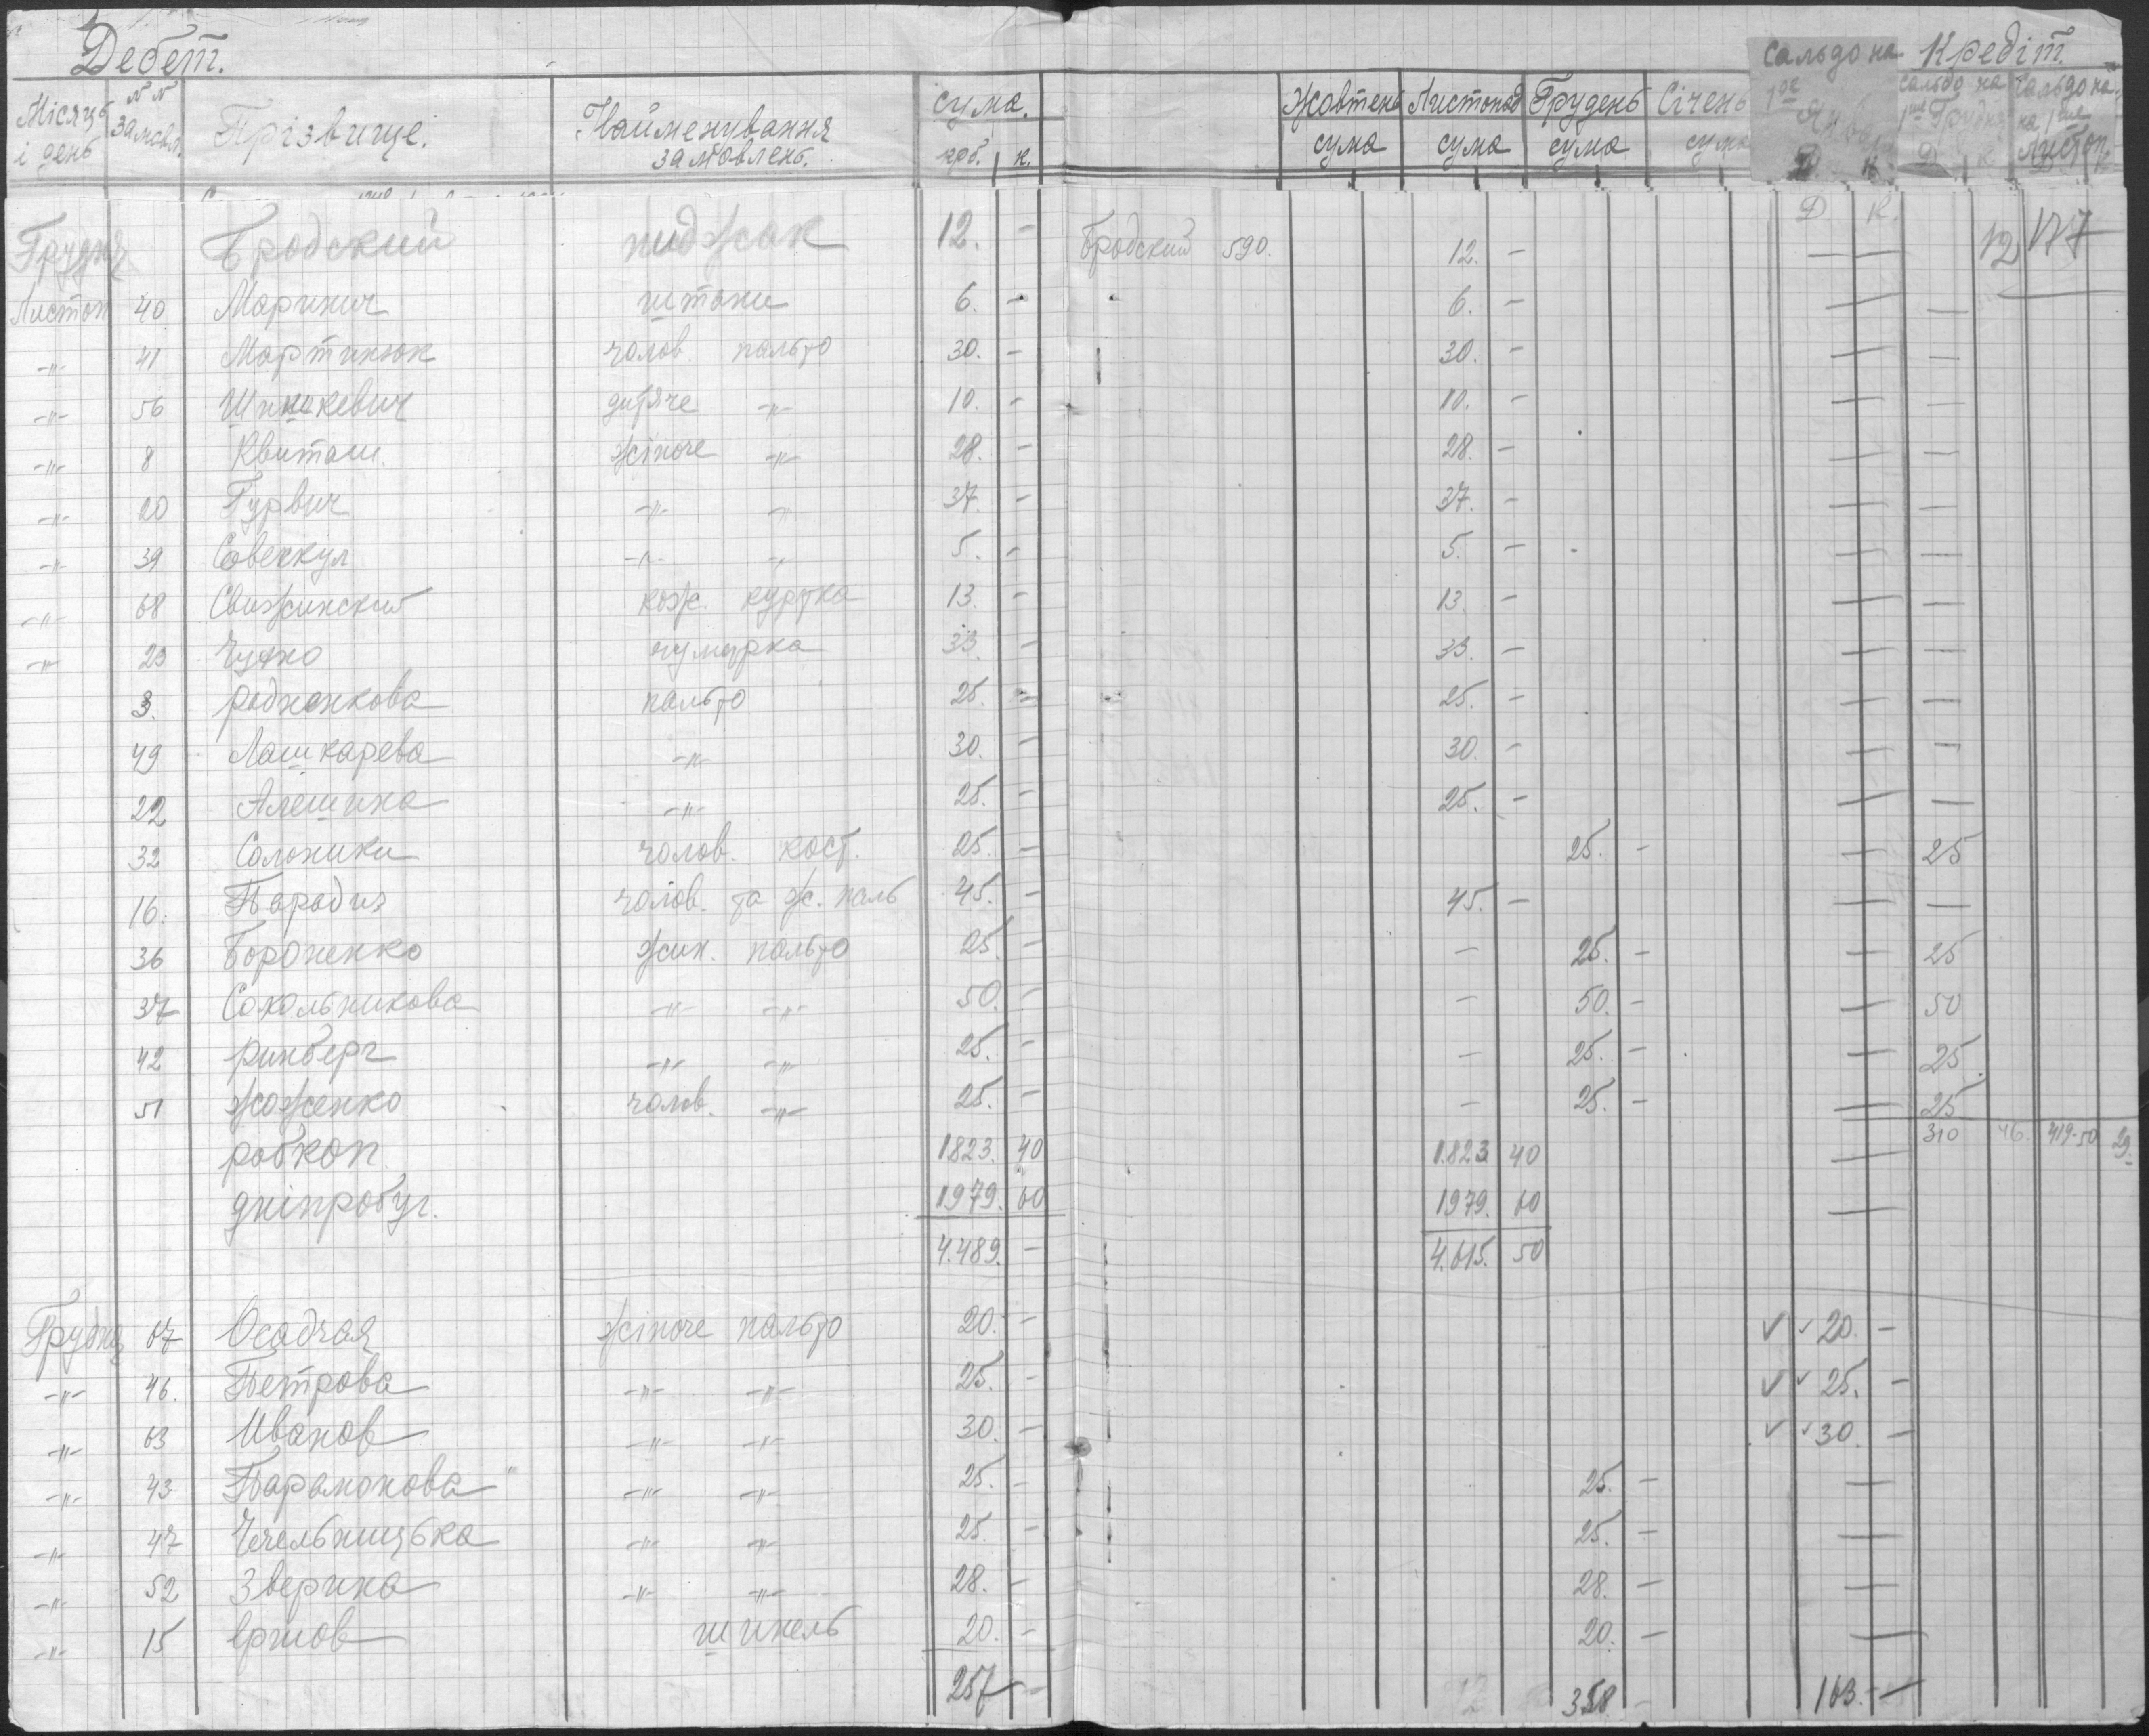 Дебет. Кредіт.
Місяць і день №№ замовл. Прізвище. Найменування замовлень. сума. крб. к. Жовтень сума Листопад сума Грудень сума Січень сума Сальдо на 1ше Д К Сальдо на 1ше Грудня Д К Сальдо на 1ше Листоп.
Д К.
Грудня Бродский пиджак 12. – Бродский 590. 12. – — — 12 117
Листоп 40 Маринич штани 6. – 6. – — —
-"- 41 Мартинюк чолов. пальто 30. – 30. – — —
-"- 56 дитяче -"- 10. – 10. – — —
-"- 8 Квиташ. жіноче -"- 28. – 28. – — —
-"- 20 Гурвич -"- -"- 37. – 37. – — —
-"- 39 -"- -"- 5. – 5. – — —
-"- 68 Свижинский кож. куртка 13. – 13. – — —
-"- 23 чумарка 33. – 33. – — —
3. Родненкова пальто 25. – 25. – — —
49 Лашкарева -"- 30. – 30. – — —
22 Алешина -"- 25. – 25. – — —
32 Солоники чолов. кост. 25. – 25. – — 25
16. Парадиз чолов. та ж. паль 45. – 45. – — —
36 Бороненко жин. пальто 25. – – 25. – — 25
37 Сокольникова -"- -"- 50. – – 50. – — 50
42 Ринберг -"- -"- 25. – – 25. – — 25
51 Жоженко чолов. -"- 25. – – 25. – — 25
робкоп 1823. 40 1.823. 40 — 310 46. 419.50 29.
дніпробуг. 1979. 60 1979. 60 —
4.489. – 4.615. 50
Грудня 67 Осадчая жіноче пальто 20. – ✓ ✓ 20. –
-"- 46. Петрова -"- -"- 25. – ✓ ✓ 25. –
-"- 63 Иванов -"- -"- 30. – ✓ ✓ 30. –
-"- 43 Парамонова -"- -"- 25. – 25. – —
-"- 47 Чечельницька -"- -"- 25. – 25. – —
-"- 52 Зверина -"- -"- 28. – 28. – —
-"- 15 Єршов шинель 20. – 20. – —
257 – 358 – 163. –